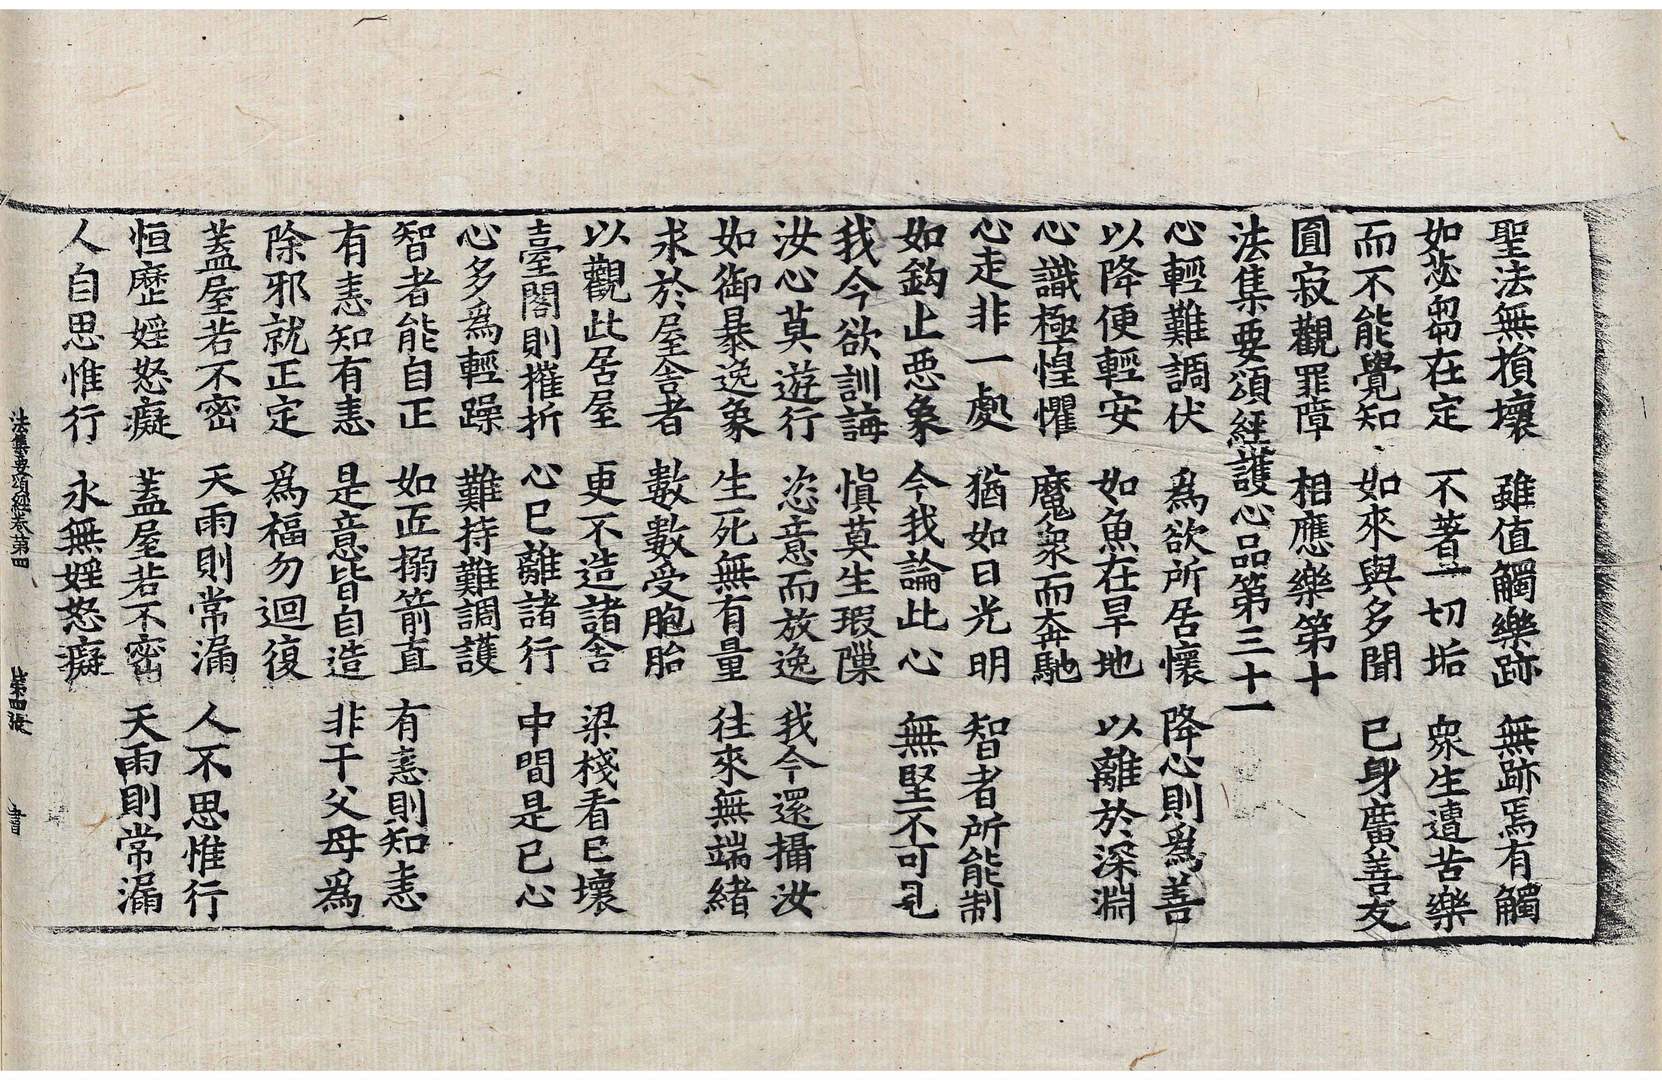 聖法無損壞　雖值觸樂跡　無跡焉有觸
如苾芻在定　不著一切垢　衆生遭苦樂
而不能覺知　如來與多聞　已身廣善友
圓寂觀罪障　相應樂第十
法集要頌經護心品第三十一
心輕難調伏　爲欲所居懷　降心則爲善
以降便輕安　如魚在旱地　以離於深淵
心識極惶懼　魔衆而奔馳
心走非一處　猶如日光明　智者所能制
如鈎止惡象　今我論此心　無堅不可見
我今欲訓誨　愼莫生瑕隟
汝心莫遊行　恣意而放逸　我今還攝汝
如御暴逸象　生死無有量　往來無端緒
求於屋舍者　數數受胞胎
以觀此居屋　更不造諸舍　梁棧看已壞
臺閣則摧折　心已離諸行　中間是已心
心多爲輕躁　難持難調護
智者能自正　如匠搦箭直　有恚則知恚
有恚知有恚　是意皆自造　非干父母爲
除邪就正定　爲福勿迴復
蓋屋若不密　天雨則常漏　人不思惟行
恒歷婬怒癡　蓋屋若不密　天雨則常漏
人自思惟行　永無婬怒癡
法集要頌經卷第四　第四張